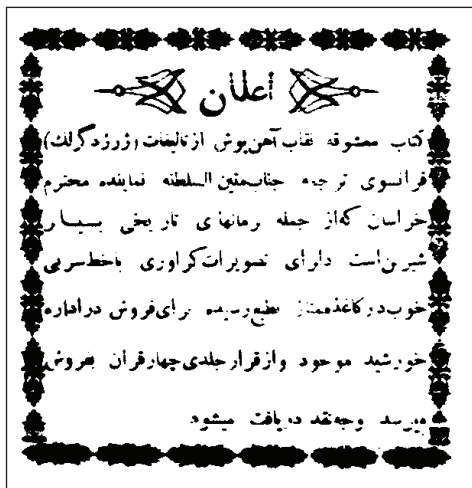 اعلان
کتاب معشوقه نقاب آهن‌پوش از تالیفات (ژرژدگرلك)
فرانسوی ترجمه جناب‌متین‌السلطنه نماینده محترم
خراسان که‌از جمله رمانهای تاریخی بسیار
شیرین‌است دارای تصویرات‌کراوری باخط‌سربی
خوب‌در کاغذممتاز بطبع‌رسیده برای‌فروش دراداره
خورشید موجود وازقرارجلدی‌چهارقران بفروش
میرسد وجه‌نقد دریافت میشود